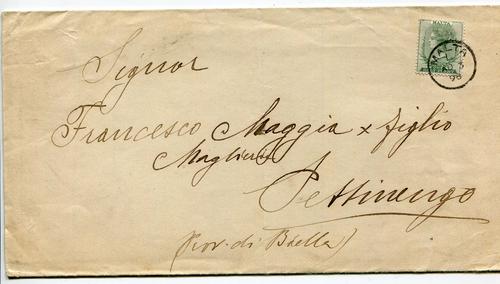 MALTA
MALTA
Signor
Francesco Maggia x figlio
Pettinengo
(Prov. di Biella)